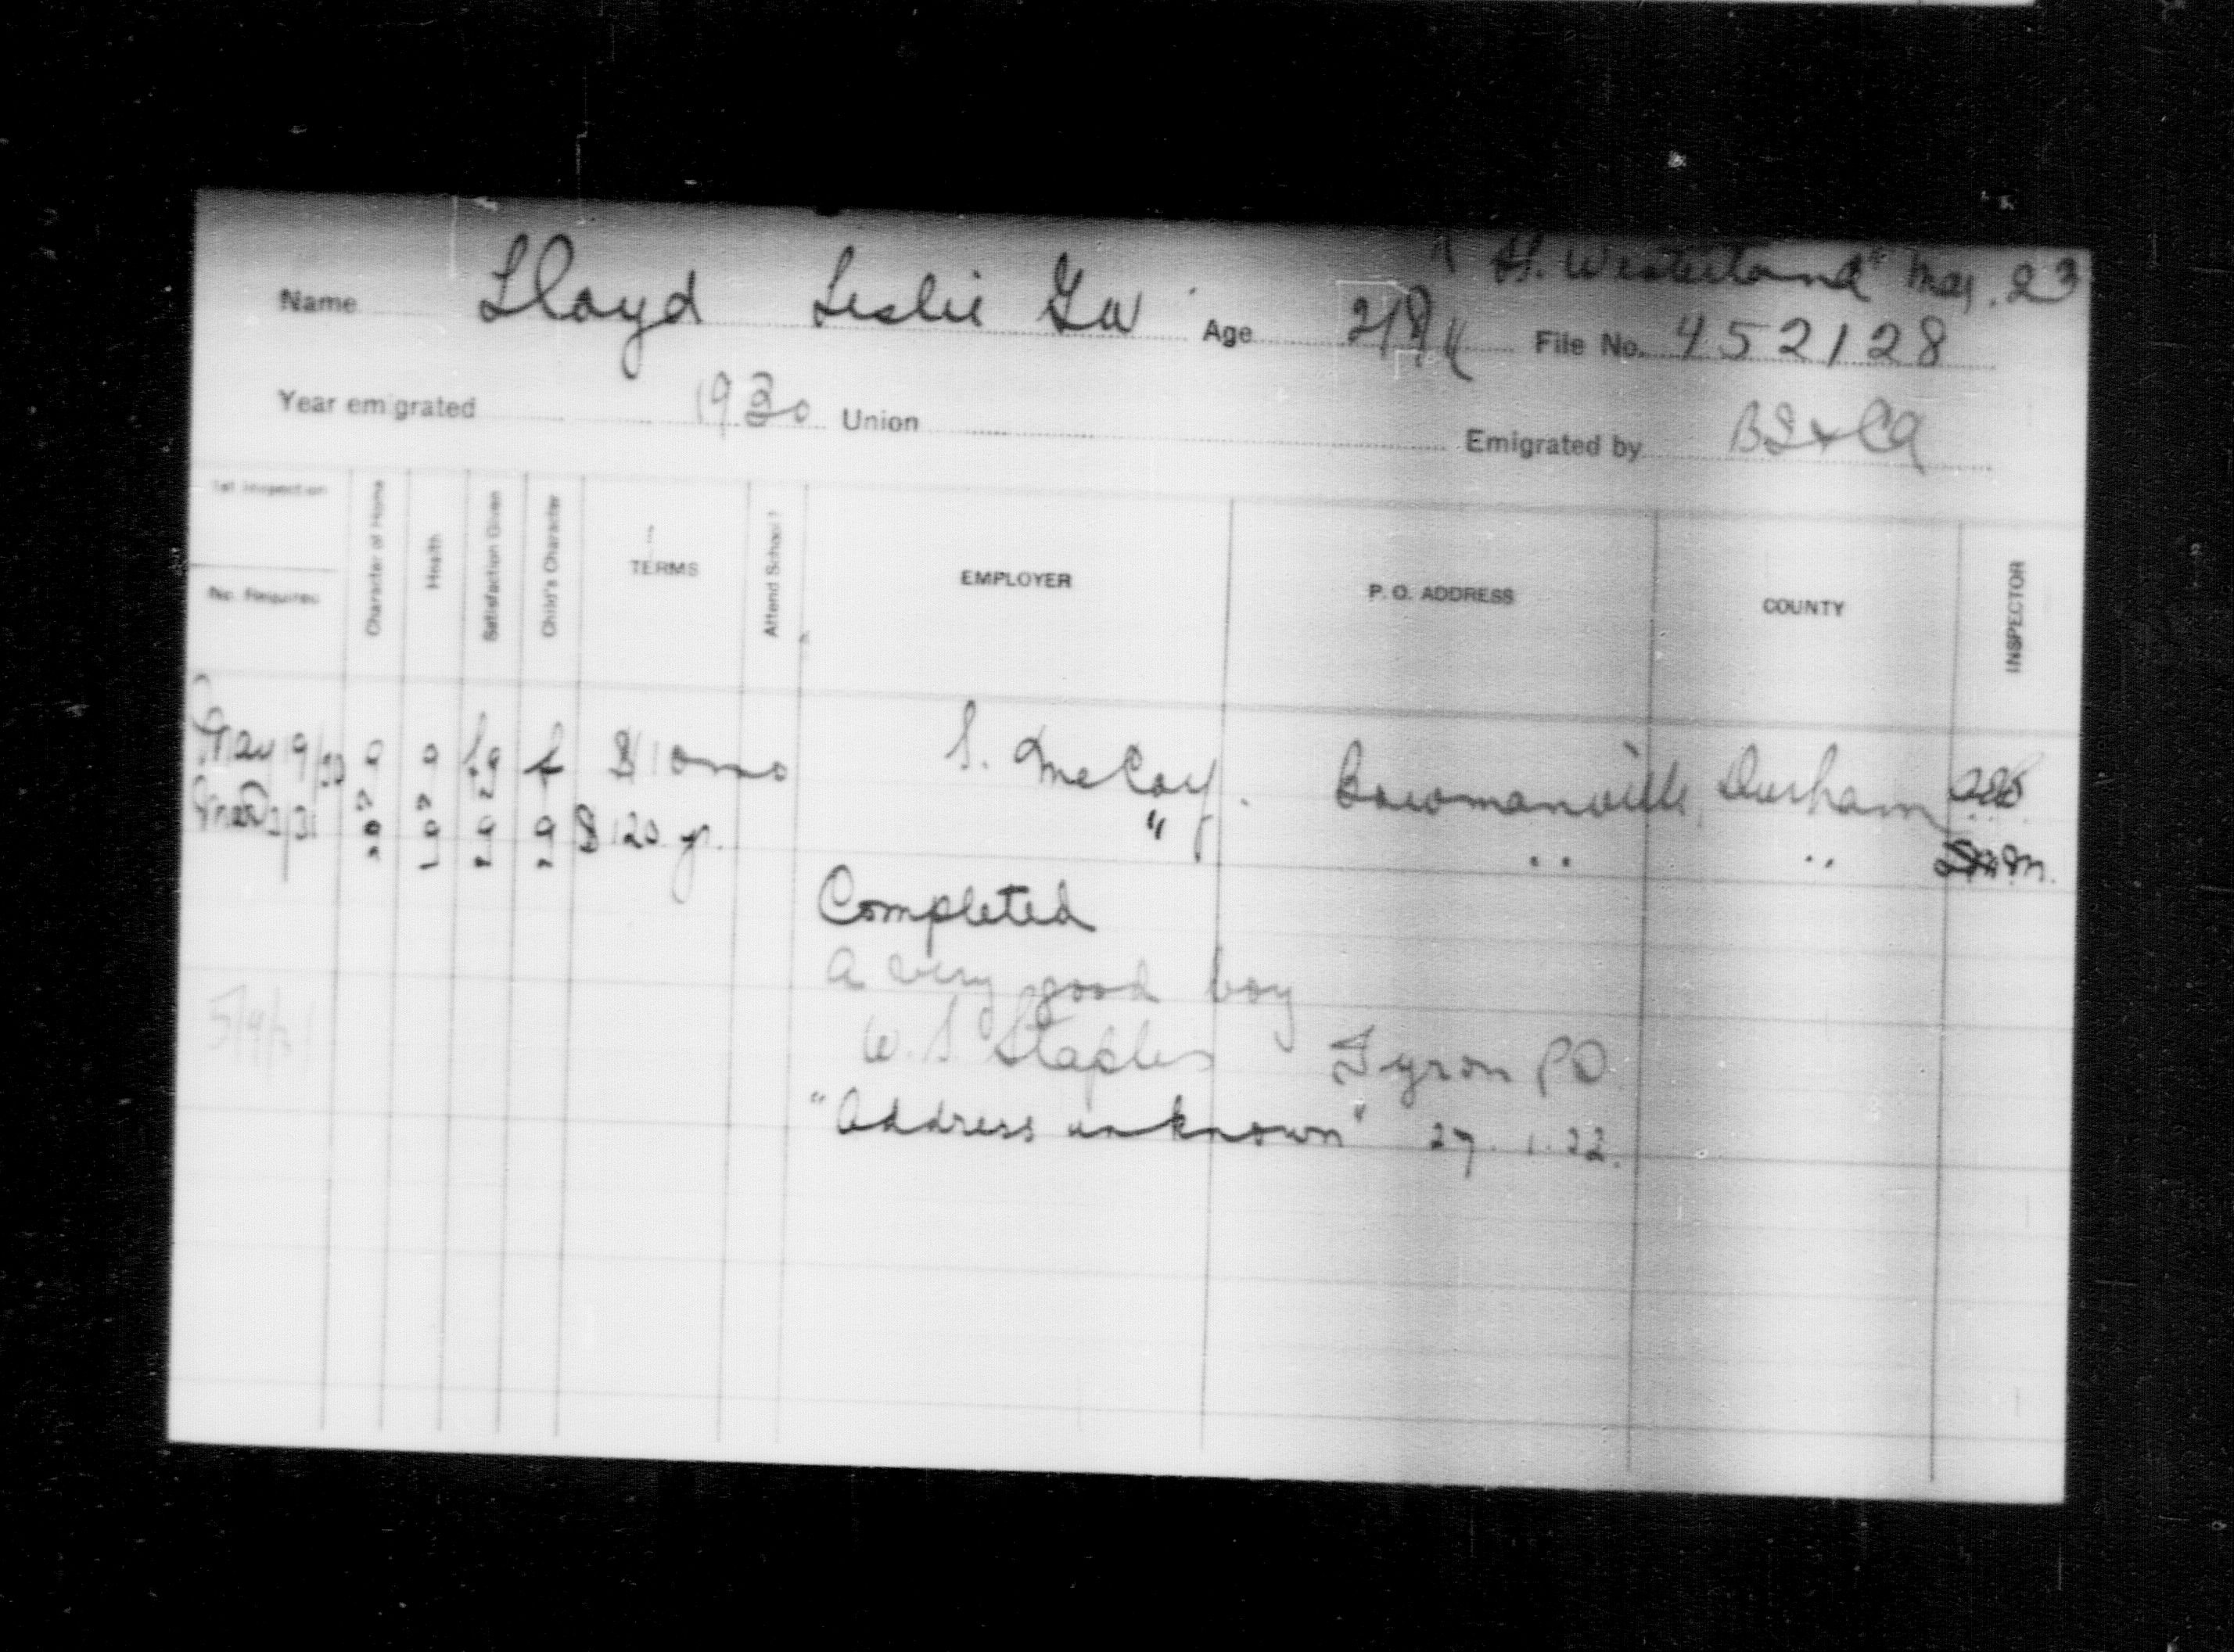 "Westerland" Mar. 23
Name Lloyd Leslie Age File No. 452128
Year emigrated 1930 Union Emigrated by
1st Inspection
No. Required
Character of Home
Health
Satisfaction Given
Child's Character
TERMS
Attend School?
EMPLOYER
P. O. ADDRESS
COUNTY
INSPECTOR
May 9/30 g g f $10 mo S. McCoy. Bowmanville Durham
31 g g g $120 yr. " " "
Completed
a very good boy
W. S. Staples Tyron PO
"Address unknown" 27.1.22.